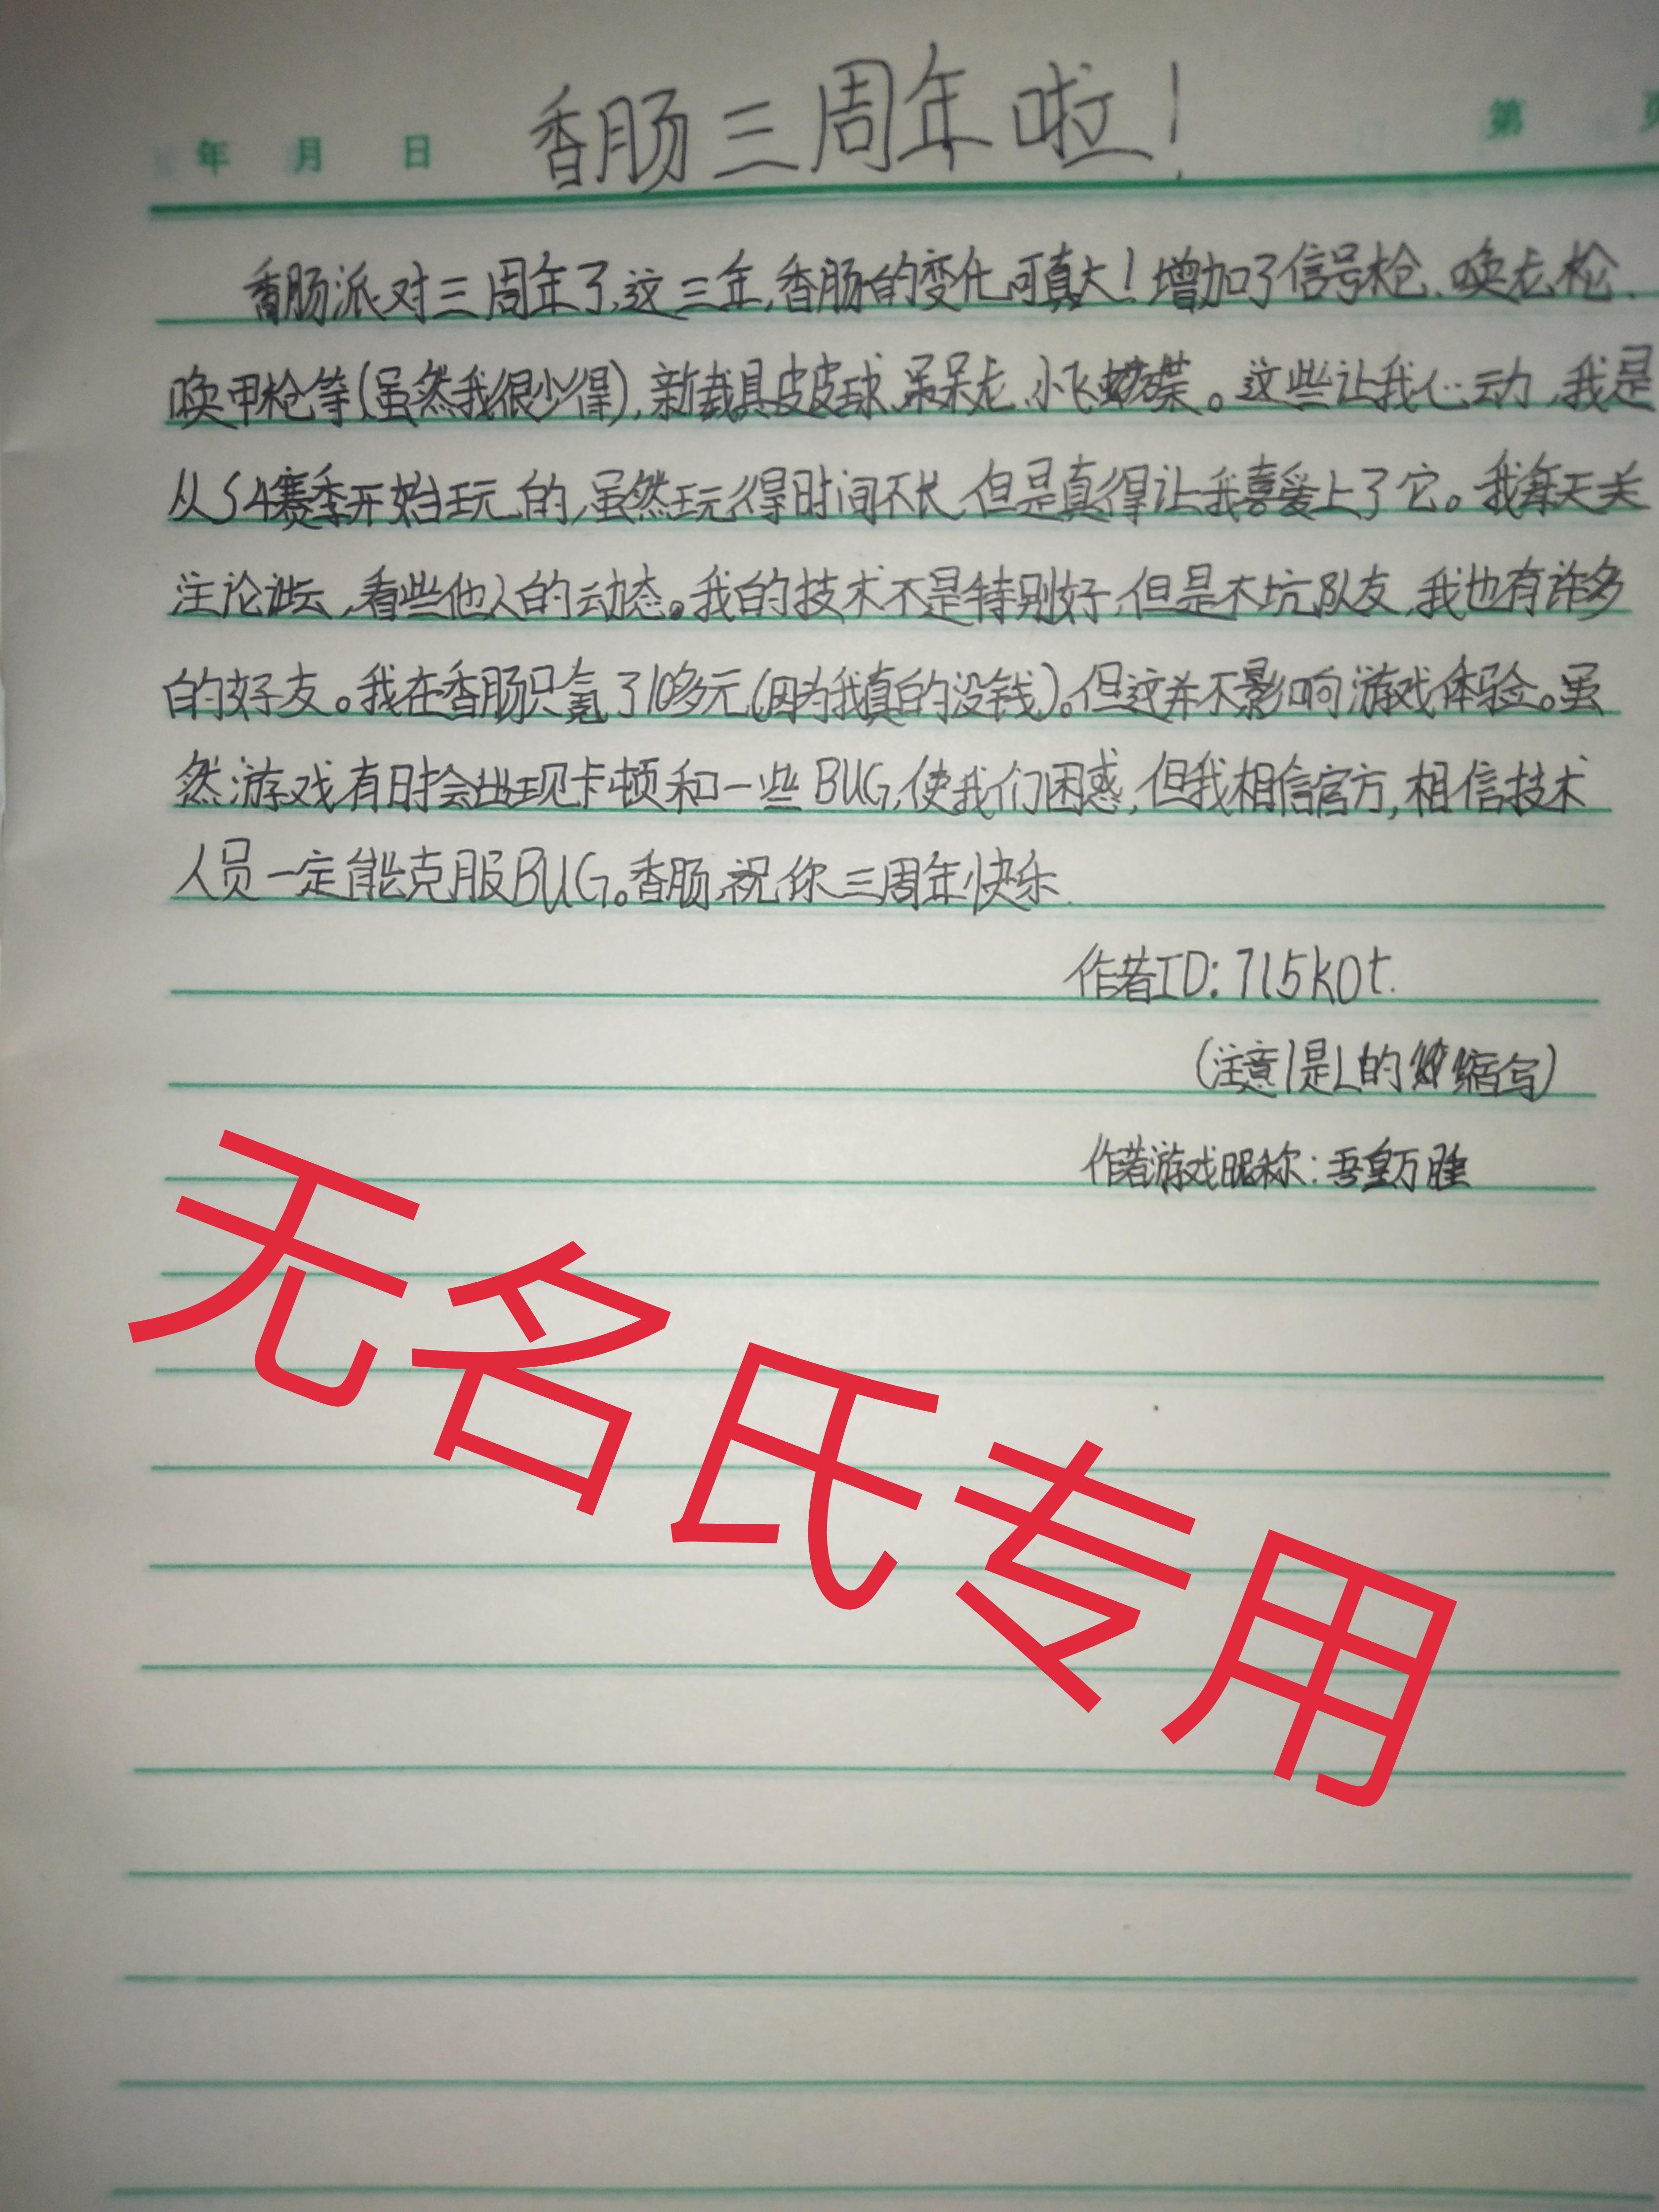 香肠三周年啦!
年 月 日 第 页
香肠派对三周年了,这三年,香肠的变化可真大!增加了信号枪、唤龙枪、
唤甲枪等(虽然我很少得),新载具皮皮球、呆呆龙、小飞蝶。这些让我心动,我是
从S4赛季开始玩的,虽然玩得时间不长,但是真得让我喜爱上了它。我每天关
注论坛,看些他人的动态。我的技术不是特别好,但是不坑队友,我也有许多
的好友。我在香肠只氪了10多元(因为我真的没钱)。但这并不影响游戏体验。虽
然游戏有时会出现卡顿和一些BUG,使我们困惑,但我相信官方,相信技术
人员一定能克服BUG。香肠,祝你三周年快乐.
作者ID:7l5k0t.
(注意l是L的缩写)
作者游戏昵称:吾皇万睡
无名氏专用